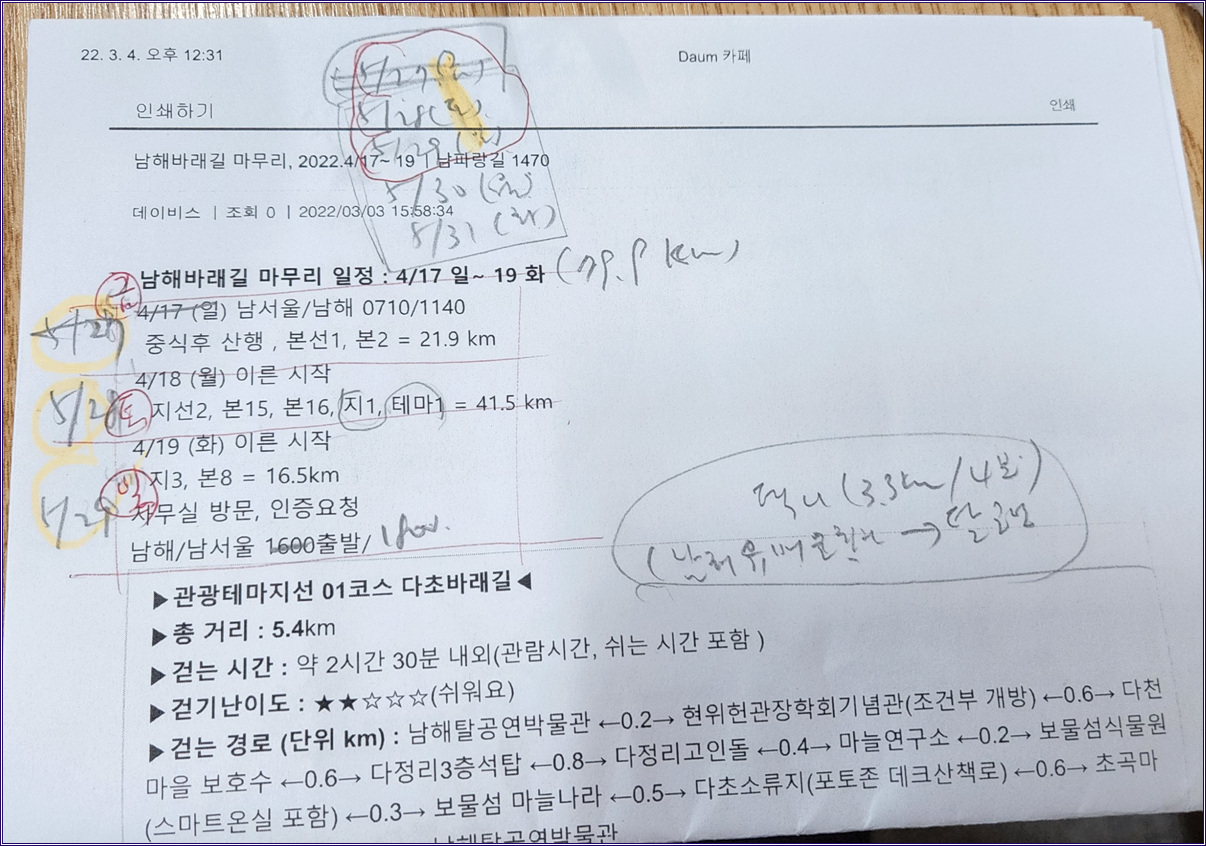 22. 3. 4. 오후 12:31
Daum 카페
5/27 (금)
5/28 (토)
5/29 (일)
5/30 (월)
5/31 (화)
인쇄하기
인쇄
남해바래길 마무리, 2022.4/17~ 19 | 남파랑길 1470
데이비스 | 조회 0 | 2022/03/03 15:58:34
남해바래길 마무리 일정 : 4/17 일~ 19 화 (79.9 km)
금
4/17 (일) 남서울/남해 0710/1140
중식후 산행 , 본선1, 본2 = 21.9 km
4/18 (월) 이른 시작
5/28 토 지선2, 본15, 본16, 지1, 테마1 = 41.5 km
4/19 (화) 이른 시작
지3, 본8 = 16.5km
5/29 일 사무실 방문, 인증요청
남해/남서울 1600출발/
(3.3km/4분)
▶관광테마지선 01코스 다초바래길◀
▶총 거리 : 5.4km
▶걷는 시간 : 약 2시간 30분 내외(관람시간, 쉬는 시간 포함 )
▶걷기난이도 : ★★☆☆☆(쉬워요)
▶걷는 경로 (단위 km) : 남해탈공연박물관 ←0.2→ 현위헌관장학회기념관(조건부 개방) ←0.6→ 다천
마을 보호수 ←0.6→ 다정리3층석탑 ←0.8→ 다정리고인돌 ←0.4→ 마늘연구소 ←0.2→ 보물섬식물원
(스마트온실 포함) ←0.3→ 보물섬 마늘나라 ←0.5→ 다초소류지(포토존 데크산책로) ←0.6→ 초곡마
남해탈공연박물관